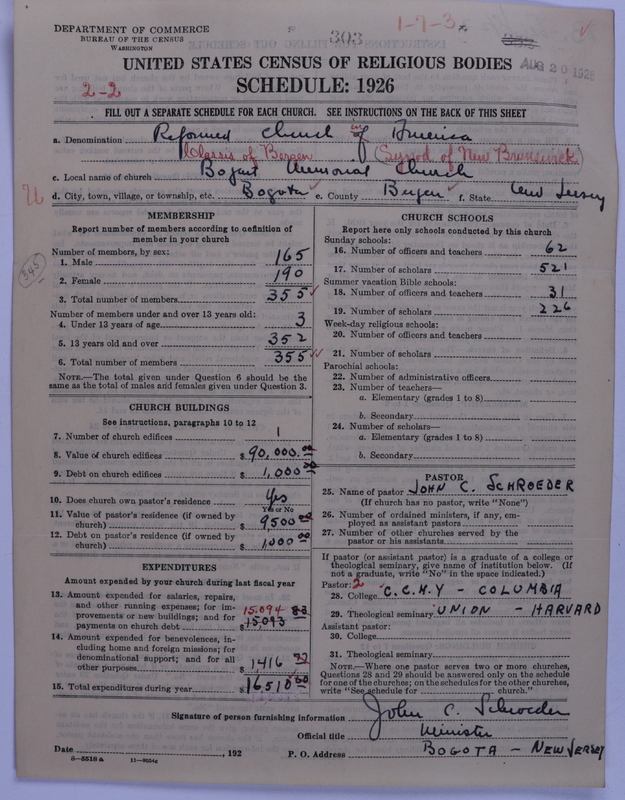 DEPARTMENT OF COMMERCE
BUREAU OF THE CENSUS
WASHINGTON
303
1-7-3
AUG 20 1926
UNITED STATES CENSUS OF RELIGIOUS BODIES
SCHEDULE: 1926
2-2
FILL OUT A SEPARATE SCHEDULE FOR EACH CHURCH. SEE INSTRUCTIONS ON THE BACK OF THIS SHEET
a. Denomination Reformed Church in America
Classis of Bergen (Synod of New Brunswick)
c. Local name of church Bogart Memorial Church
d. City, town, village, or township, etc. Bogota e. County Bergen f. State New Jersey
MEMBERSHIP
Report number of members according to definition of member in your church
Number of members, by sex:
1. Male 165
2. Female 190
3. Total number of members 355
Number of members under and over 13 years old:
4. Under 13 years of age 3
5. 13 years old and over 352
6. Total number of members 355
NOTE.—The total given under Question 6 should be the same as the total of males and females given under Question 3.
CHURCH BUILDINGS
See instructions, paragraphs 10 to 12
7. Number of church edifices 1
8. Value of church edifices $ 90,000.00
9. Debt on church edifices $ 1,000 00
10. Does church own pastor's residence Yes
Yes or No
11. Value of pastor's residence (if owned by church) $ 9500 00
12. Debt on pastor's residence (if owned by church) $ 1,000 00
EXPENDITURES
Amount expended by your church during last fiscal year
13. Amount expended for salaries, repairs, and other running expenses; for improvements or new buildings; and for payments on church debt 15,094 $ 15,093 83
14. Amount expended for benevolences, including home and foreign missions; for denominational support; and for all other purposes $ 1416
15. Total expenditures during year $ 16,510
CHURCH SCHOOLS
Report here only schools conducted by this church
Sunday schools:
16. Number of officers and teachers 62
17. Number of scholars 521
Summer vacation Bible schools:
18. Number of officers and teachers 31
19. Number of scholars 226
Week-day religious schools:
20. Number of officers and teachers
21. Number of scholars
Parochial schools:
22. Number of administrative officers
23. Number of teachers—
a. Elementary (grades 1 to 8)
b. Secondary
24. Number of scholars—
a. Elementary (grades 1 to 8)
b. Secondary
PASTOR
25. Name of pastor JOHN C. SCHROEDER
(If church has no pastor, write "None")
26. Number of ordained ministers, if any, employed as assistant pastors
27. Number of other churches served by the pastor or his assistants
If pastor (or assistant pastor) is a graduate of a college or theological seminary, give name of institution below. (If not a graduate, write "No" in the space indicated.)
Pastor: 2
28. College C.C.N.Y - COLUMBIA
29. Theological seminary UNION - HARVARD
Assistant pastor:
30. College
31. Theological seminary
NOTE.—Where one pastor serves two or more churches, Questions 28 and 29 should be answered only on the schedule for one of the churches; on the schedules for the other churches, write "See schedule for church."
Signature of person furnishing information John C. Schroeder
Official title Minister
Date , 192
P. O. Address BOGOTA - NEW JERSEY
8-5518 a 11-9554